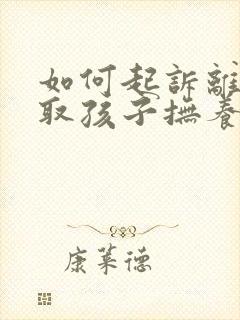 如何起訴離
取孩子撫養
康萊德